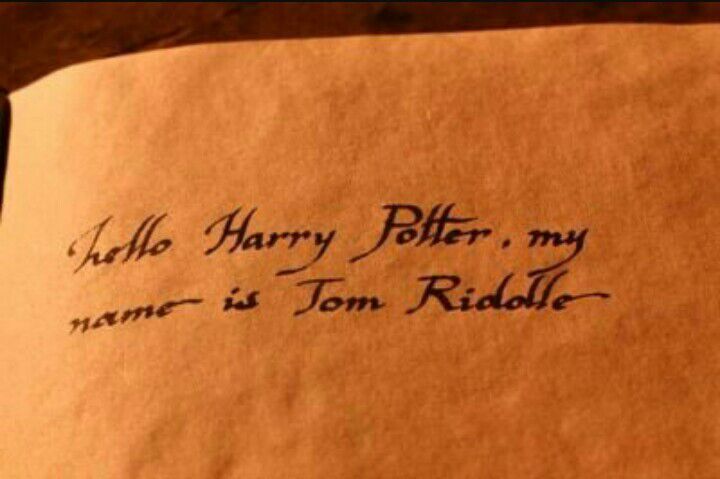 hello Harry Potter. my
name is Tom Riddle